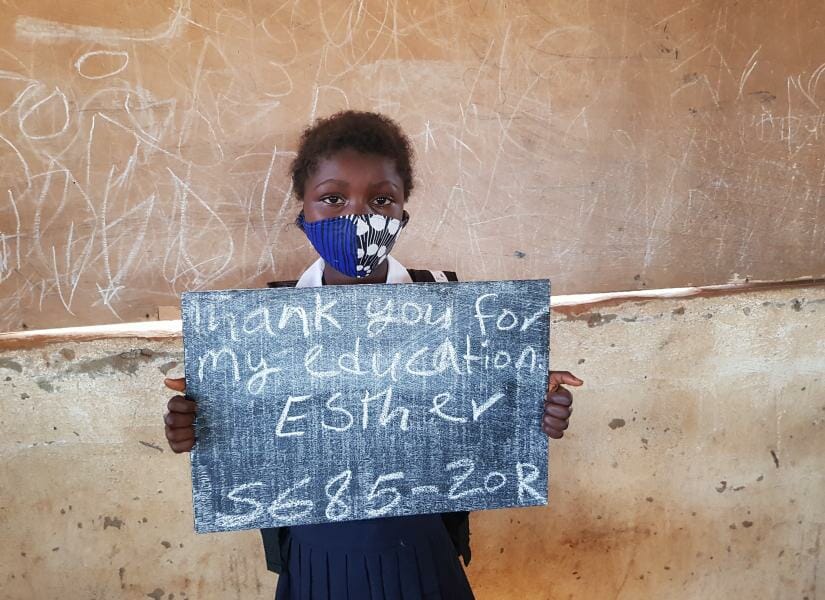 Thank you for
my education.
Esther
S685-ZoR